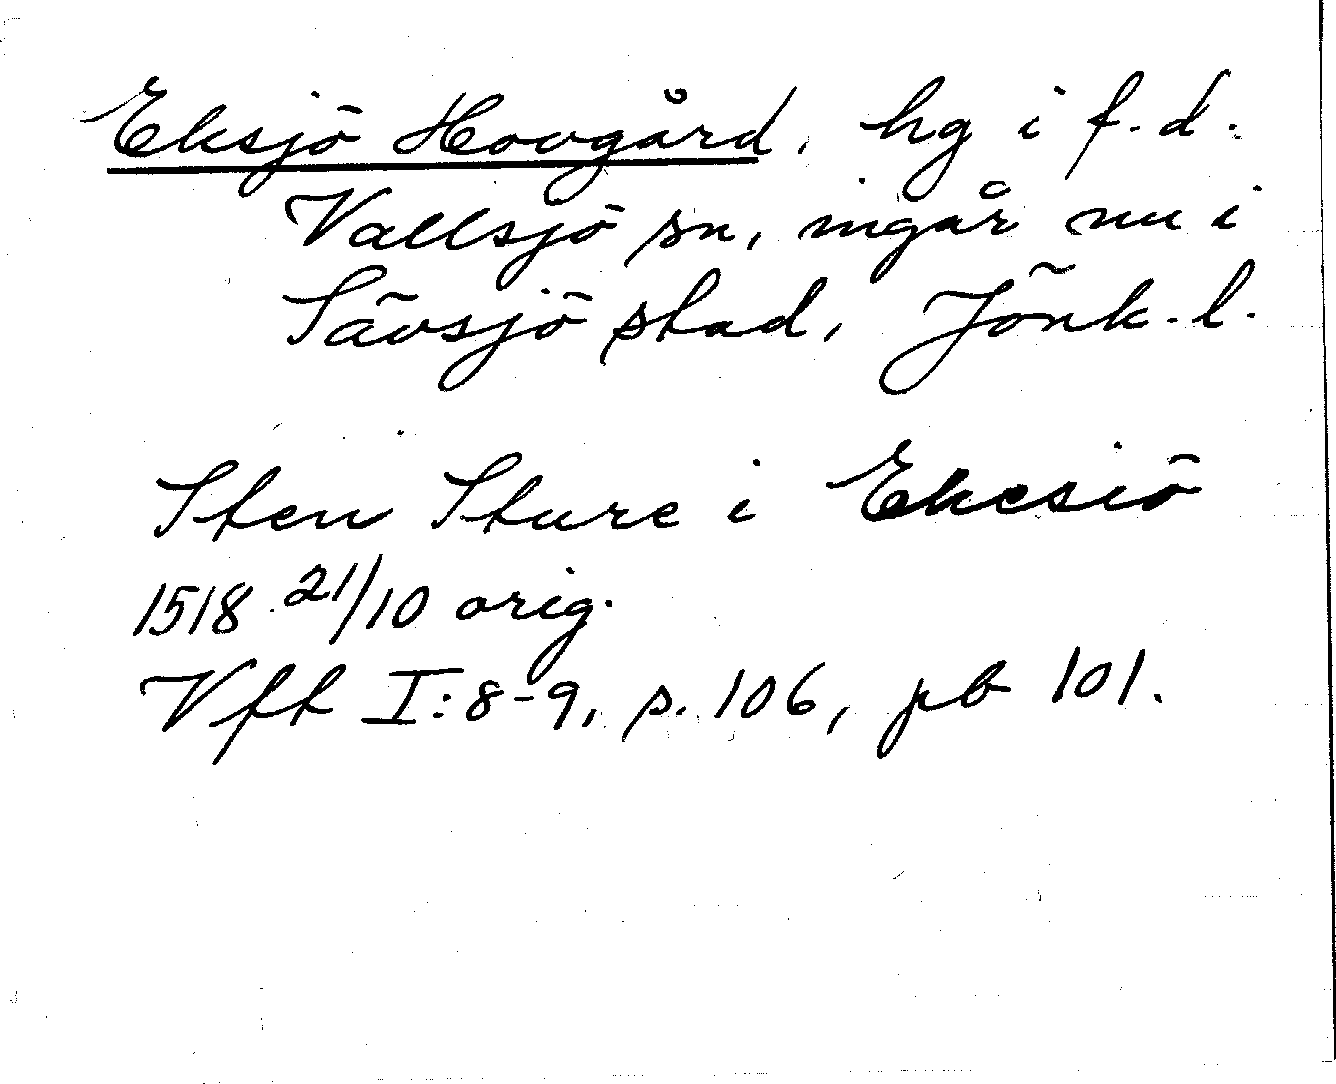 Eksjö Hovgård, hg i f.d.
Vallsjö sn, ingår nu i
Sävsjö stad, Jönk.l.
Sten Sture i Ekesiö
1518 21/10 orig.
Vft I:8-9, s. 106, pb 101.